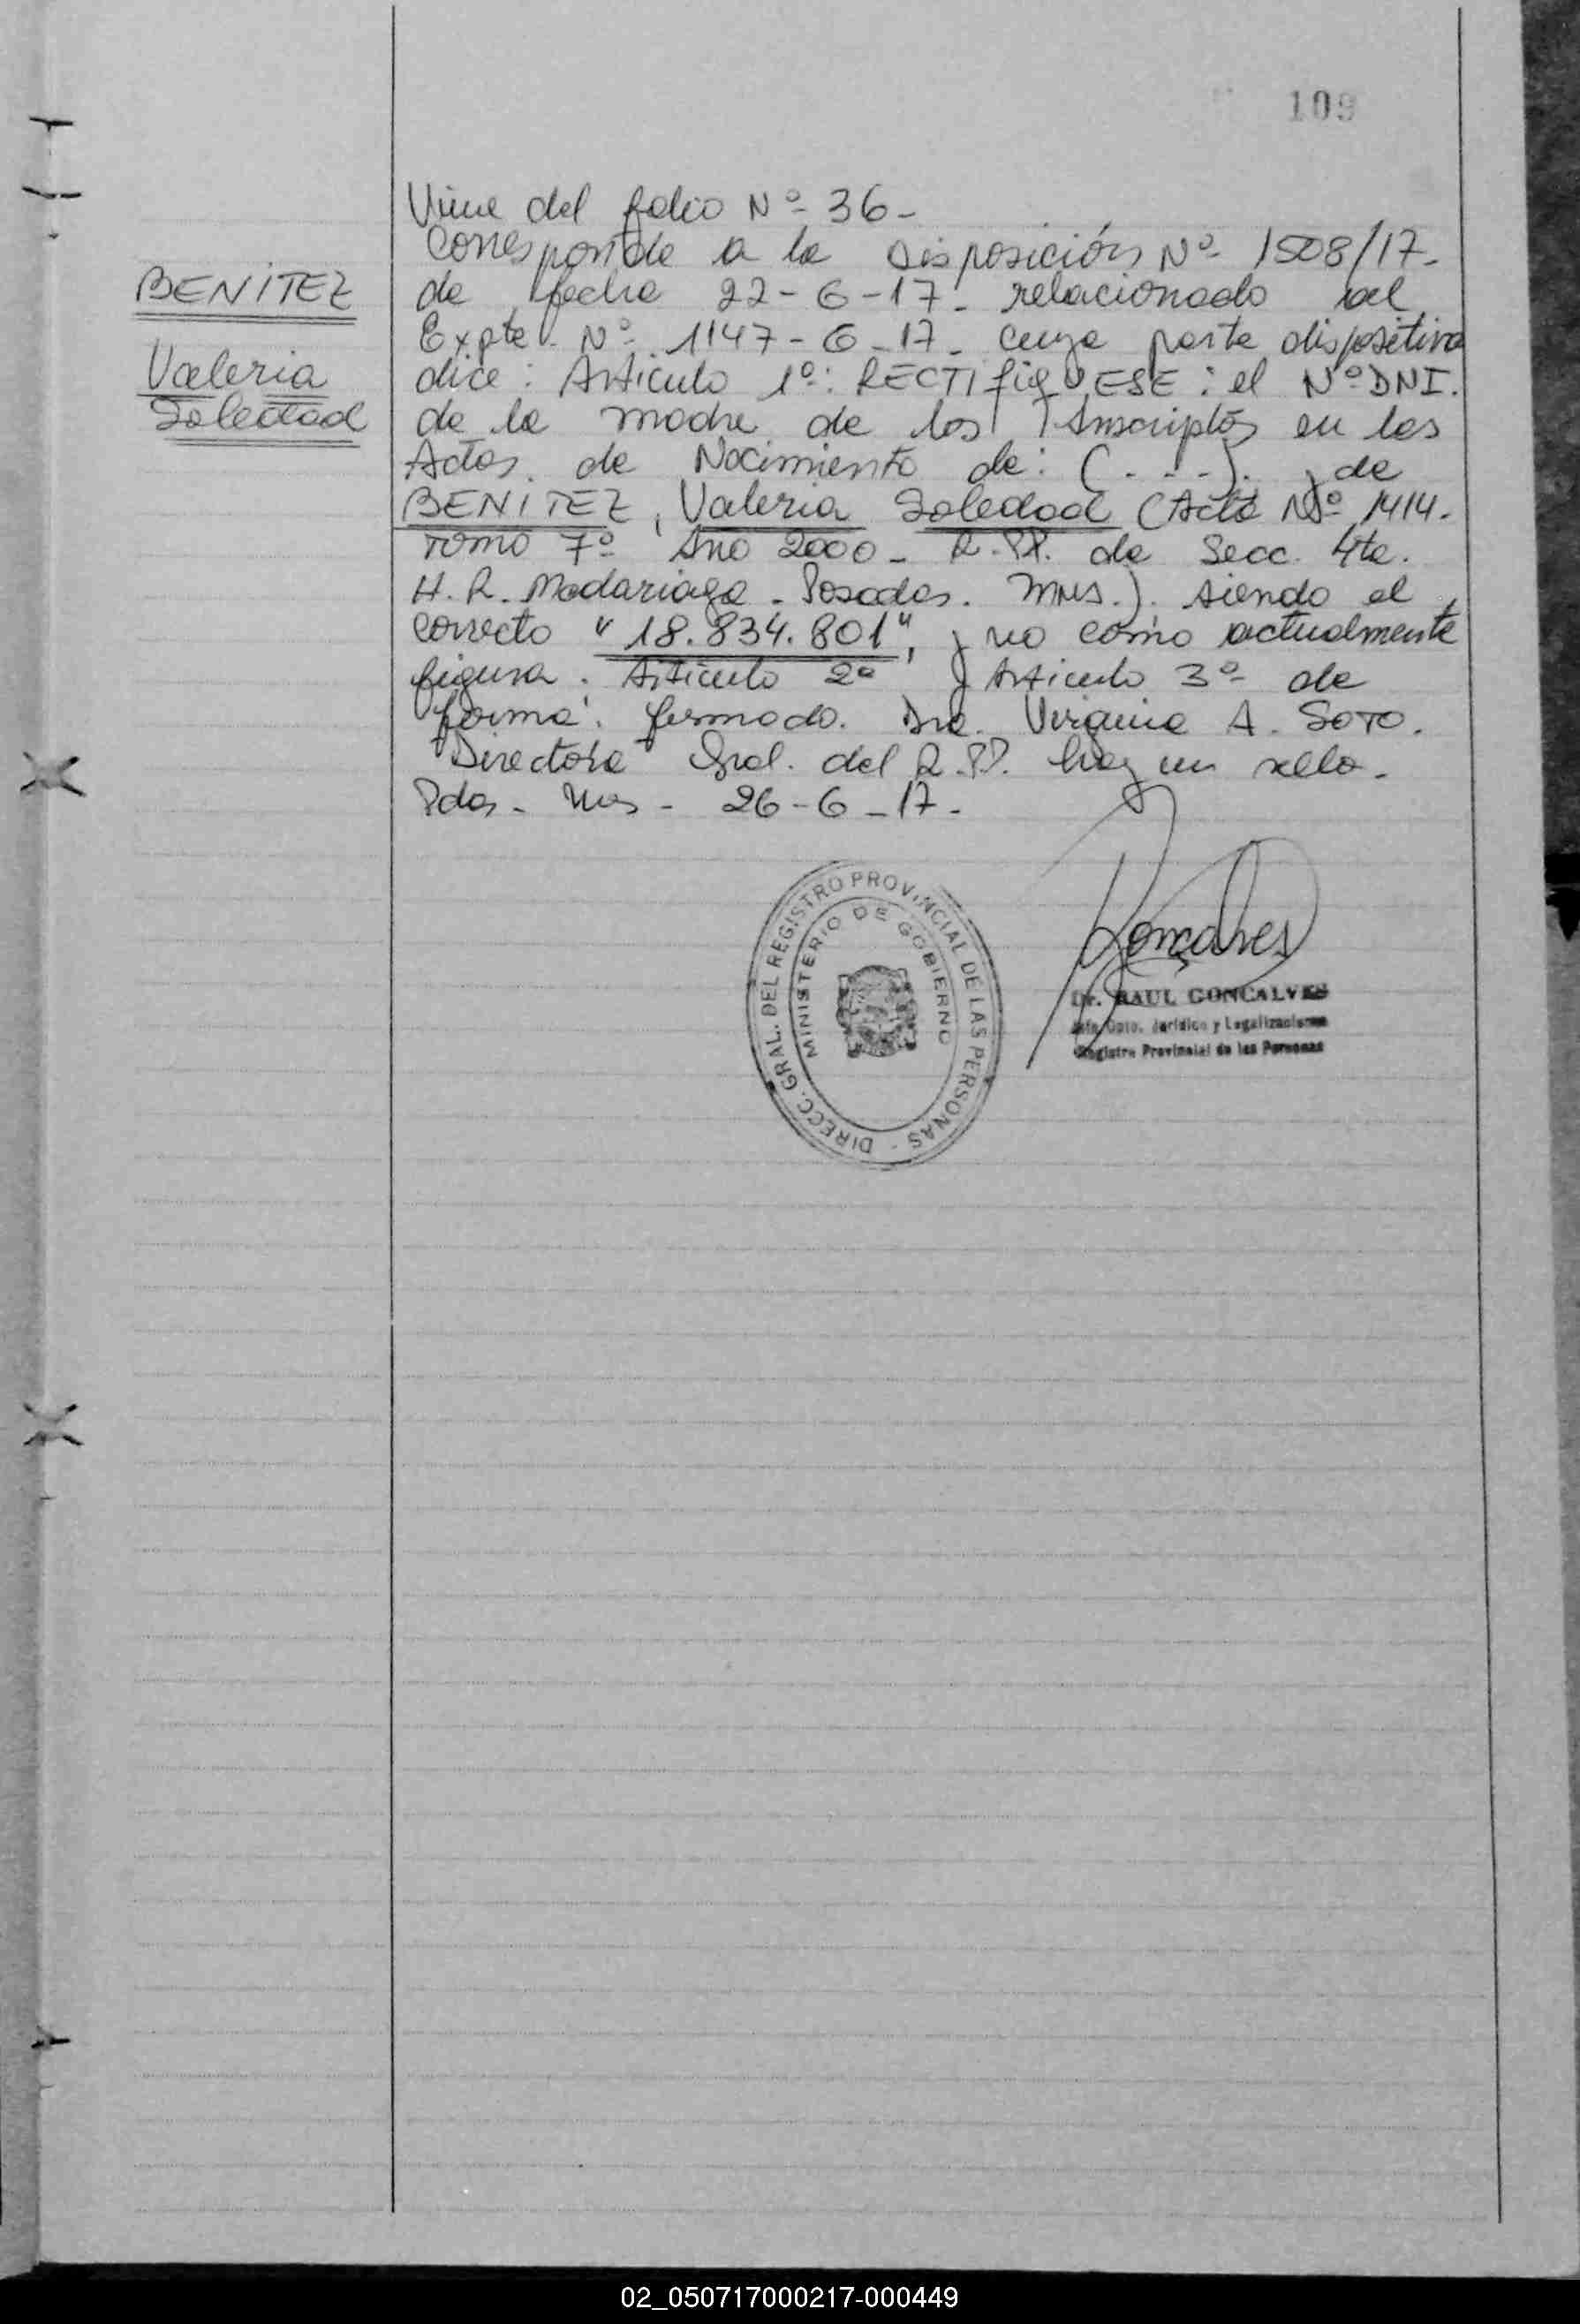 109
BENITEZ
Valeria
Soledad
Viene del folio Nº 36-
Corresponde a la Disposición Nº 1508/17-
de fecha 22-6-17- relacionado al
Expte Nº 1147-G-17- cuya parte dispositiva
dice: Artículo 1º: RECTIfiQUESE: el NºDNI.
de la madre de los Inscriptos en las
Actas de Nacimiento de: (. - - -). y de
BENITEZ, Valeria Soledad (Acta Nº 1414-
Tomo 7º Año 2000- R.PP. de Secc. 4ta.
H.R. Madariaga - Posadas. Mns.). siendo el
correcto "18.834.801", y no como actualmente
figura. Artículo 2º y Artículo 3º de
forma. firmado. Dra. Virginia A. SOTO.
Directora Gral. del R.PP. hay un sello-
Pdas - Mns - 26-6-17-
DIRECC. GRAL. DEL REGISTRO PROVINCIAL DE LAS PERSONAS -
MINISTERIO DE GOBIERNO
Goncalves
Dr. RAUL GONCALVES
Jefe Dpto. Jurídico y Legalizaciones
Registro Provincial de las Personas
02_050717000217-000449